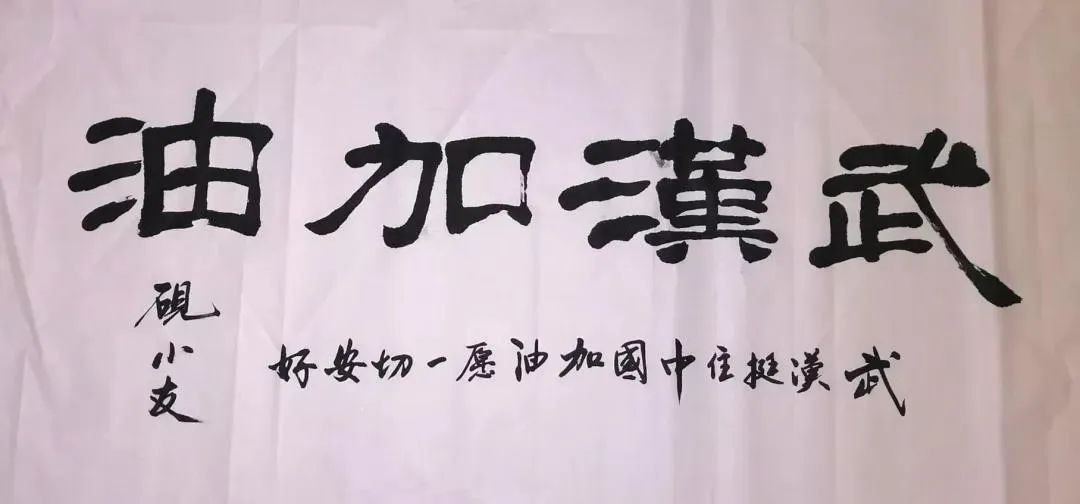 武漢加油
武漢挺住中國加油愿一切安好
硯小友